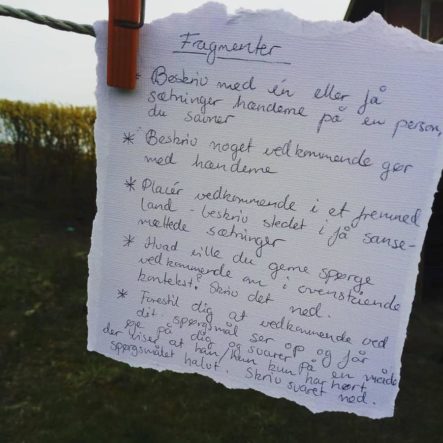 Fragmenter
* Beskriv med én eller få
sætninger hænderne på en person,
du savner
* Beskriv noget vedkommende gør
med hænderne
* Placér vedkommende i et fremmed
land - beskriv stedet i få sanse-
mættede sætninger
* Hvad ville du gerne spørge
vedkommende om i ovenstående
kontekst? Skriv det ned.
* Forestil dig at vedkommende ved
dit spørgsmål ser op og får
øje på dig og svarer på en måde
der viser at han/hun kun har hørt
spørgsmålet halvt. Skriv svaret ned.